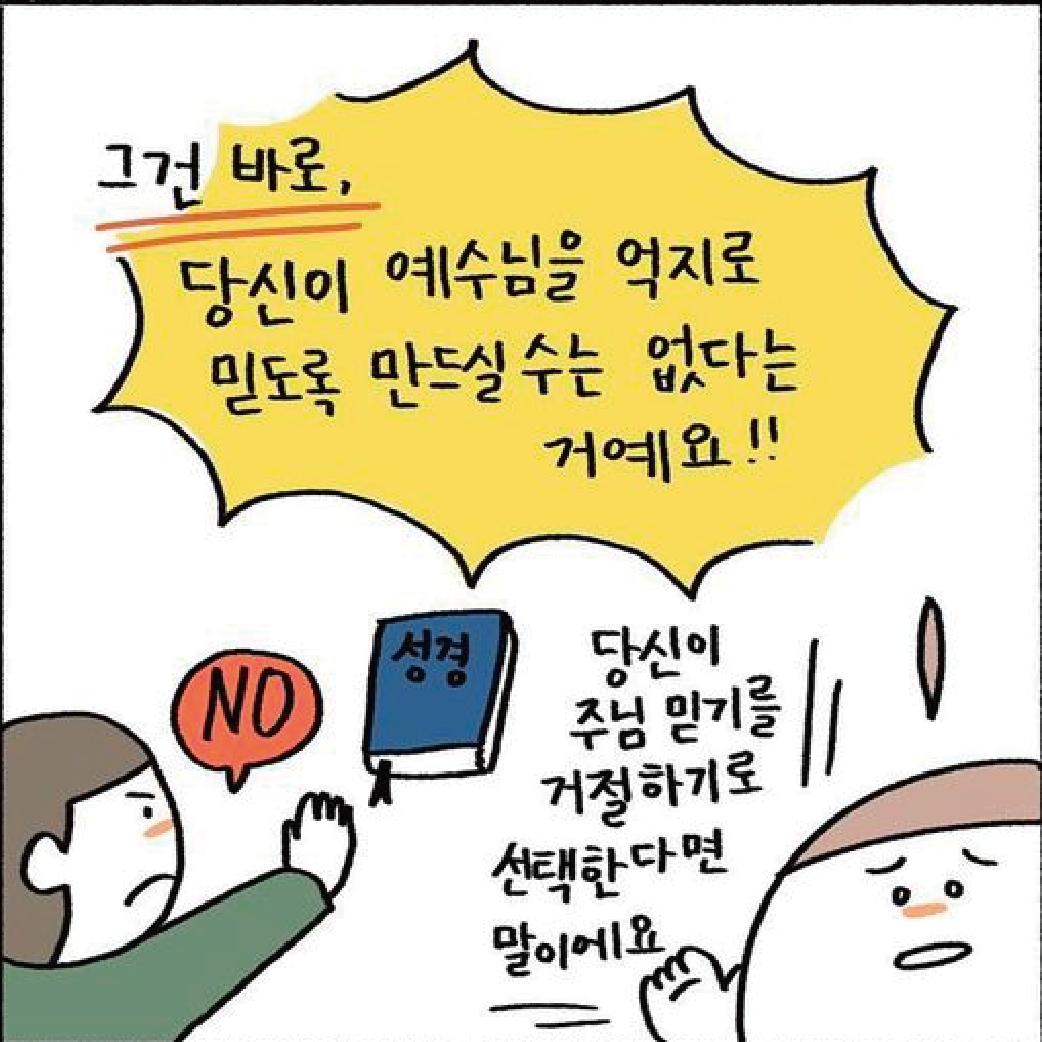 그건 바로,
당신이 예수님을 억지로
믿도록 만드실 수는 없다는
거예요!!
NO
성경
당신이
주님 믿기를
거절하기로
선택한다면
말이에요